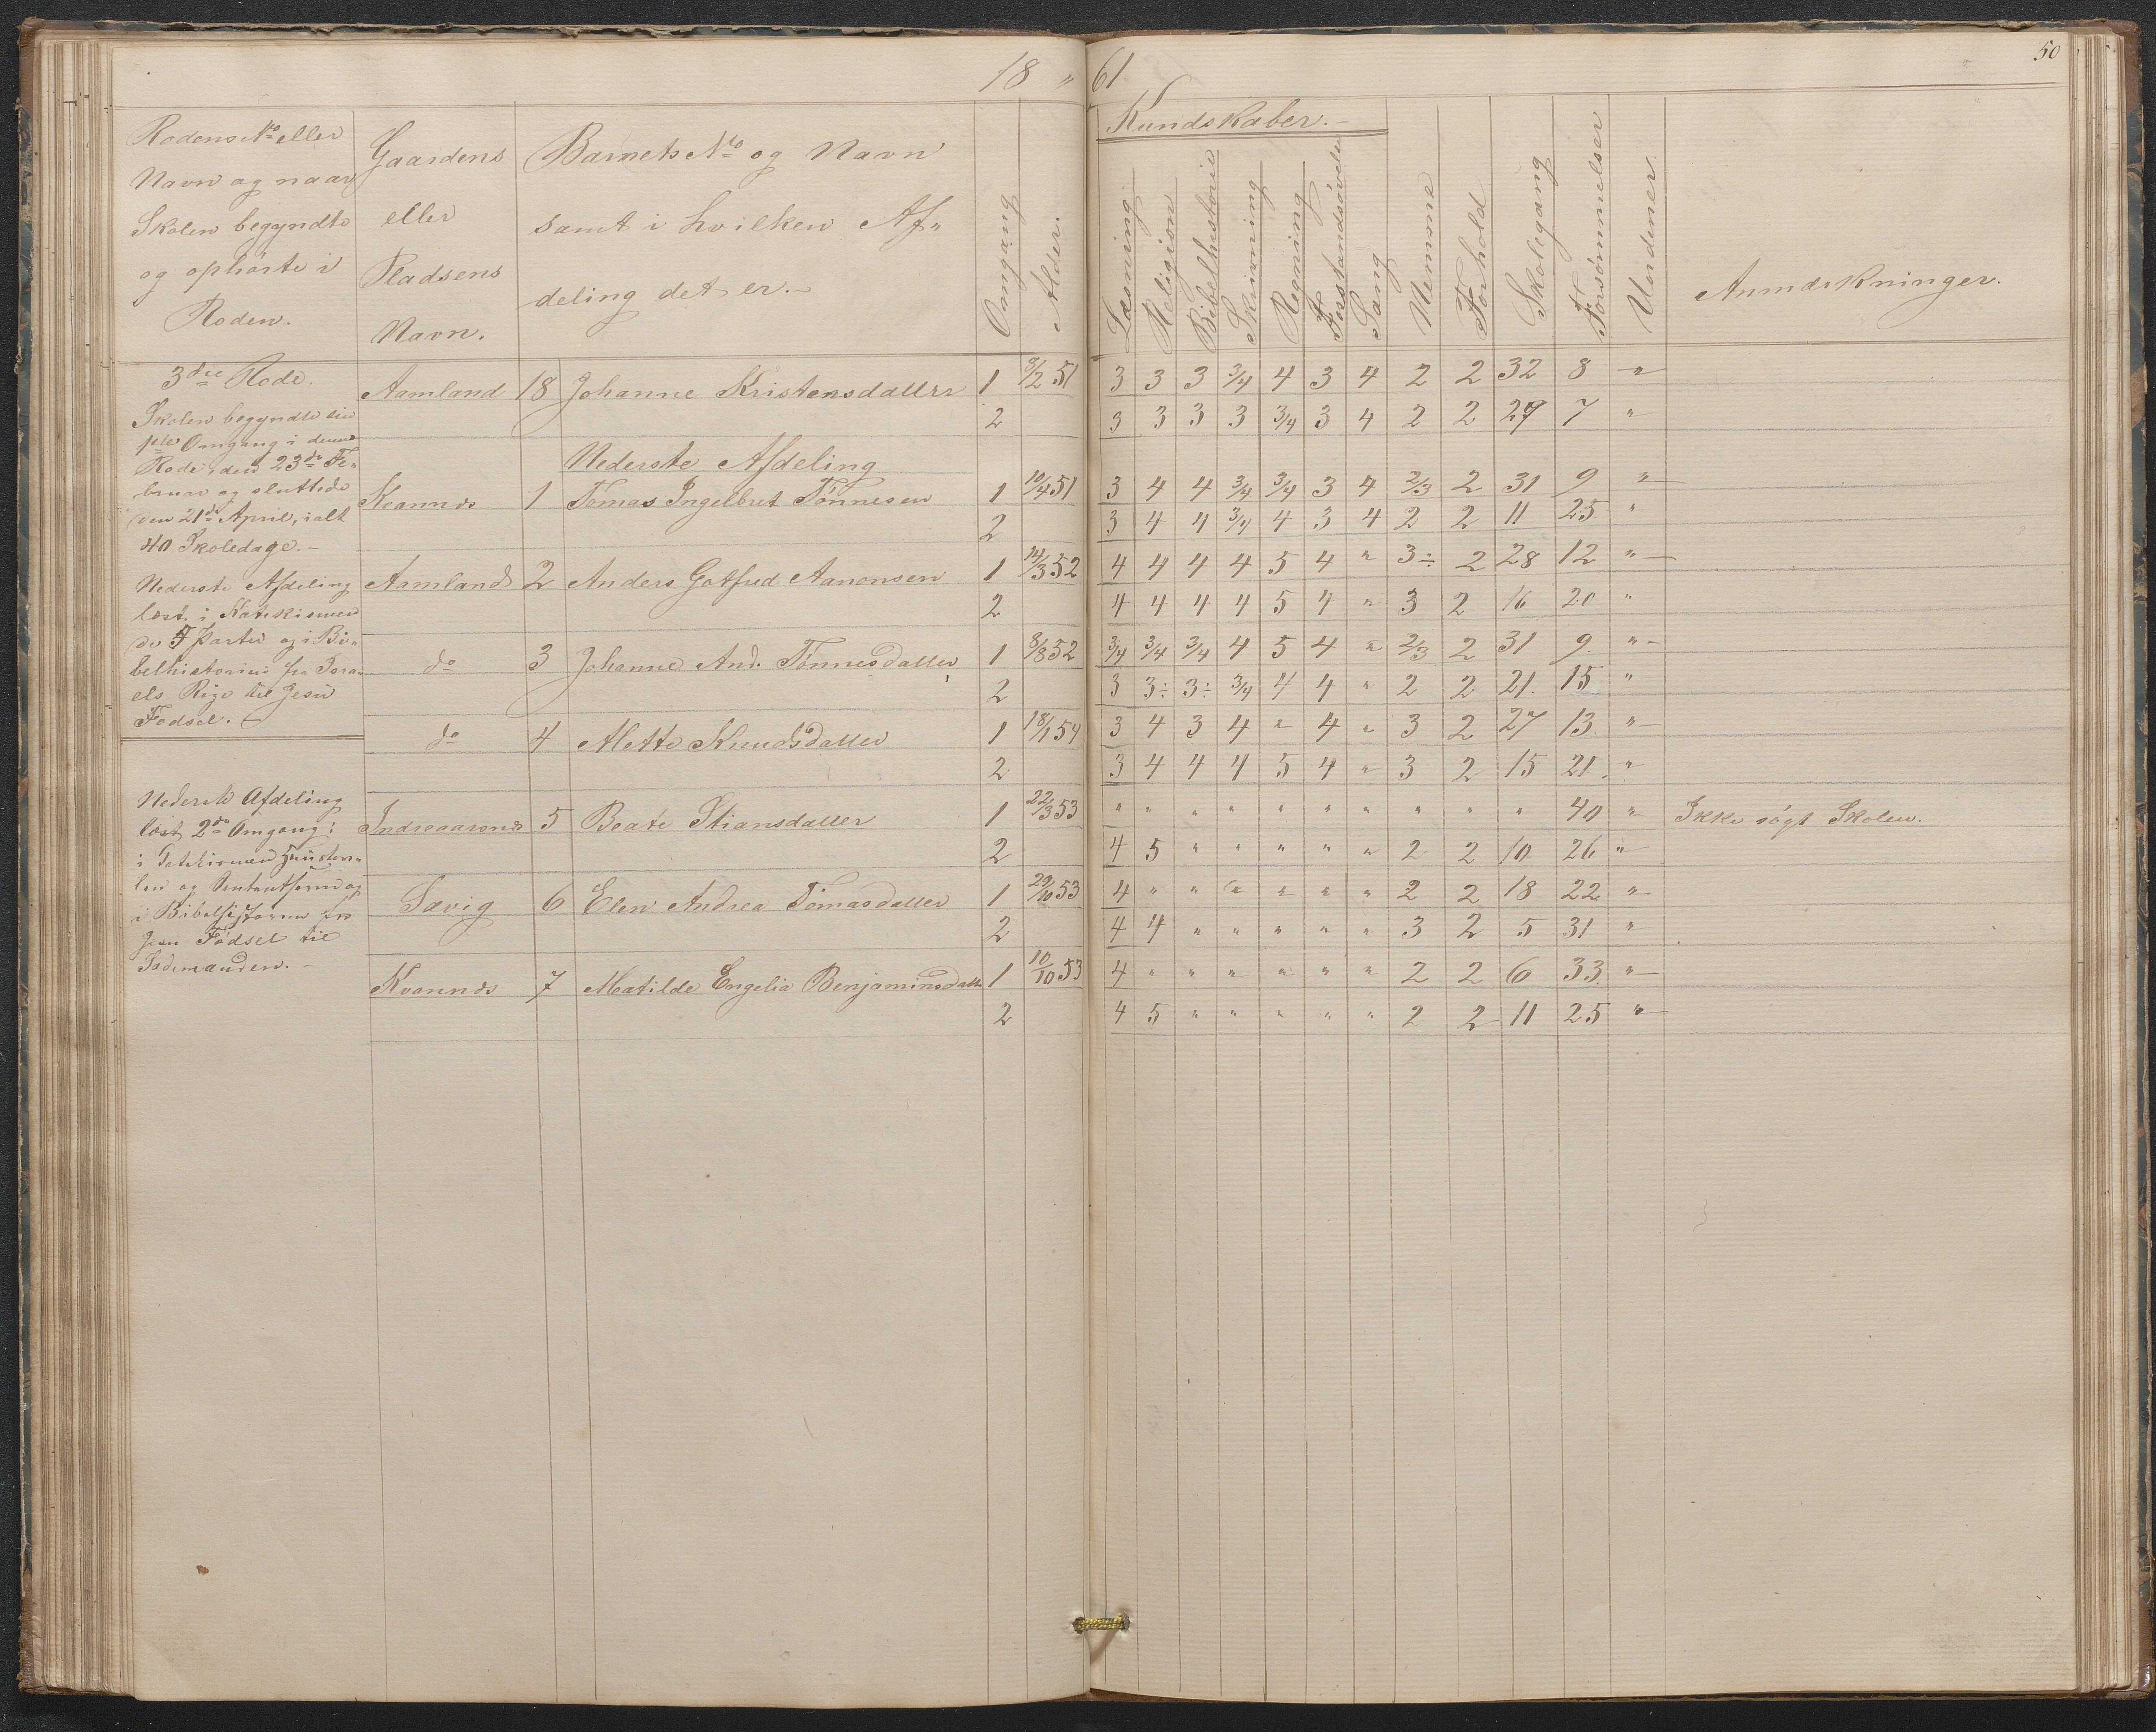 50
18 " 61
Rodens No eller
Navn og naar
Skolen begyndte
og ophørte i
Roden.
Gaardens
eller
Pladsens
Navn.
Barnets No og Navn
samt i hvilken Af-
deling det er.-
Omgang
Alder.
Kundskaber.-
Læsning
Religion
Bibelhistorie
Skrivning
Regning
Forstandsøvelse
Sang
Nemme
Forhold
Skolegang
Forsømmelser
Anmærkninger.
3die Rode.
Skolen begyndte sin
1ste Omgang i denne
Rode den 23de Fe-
bruar og sluttede
den 21de April, ialt
40 Skoledage.-
Nederste Afdeling
læst i Katekismen
de 5 Parter og i Bi-
belhistorien fra Isra-
els Rige til Jesu
Fødsel.-
Nederste Afdeling
læst 2den Omgang:
i Katekismen
og
i Bibelhistorien fra
Jesu Fødsel til
Aamland 18 Johanne Kristensdatter 1 8/2 51 3 3 3 3/4 4 3 4 2 2 32 8 "
2 3 3 3 3 3/4 3 4 2 2 29 7 "
Nederste Afdeling
Kvannes 1 Tomas Ingelbret Tønnesen 1 10/4 51 3 4 4 3/4 3/4 3 4 2/3 2 31 9 "
2 3 4 4 3/4 4 3 4 2 2 11 25 "
Aamland 2 Anders Gotfred Aanonsen 1 14/3 52 4 4 4 4 5 4 " 3÷ 2 28 12 "
2 4 4 4 4 5 4 " 3 2 16 20 "
do 3 Johanne And. Tønnesdatter 1 8/8 52 3/4 3/4 3/4 4 5 4 " 2/3 2 31 9. "
2 3 3÷ 3÷ 3/4 4 4 " 2 2 21. 15 "
do 4 Mette Knudsdatter 1 18/1 54 3 4 3 4 " 4 " 3 2 27 13 "
2 3 4 4 4 5 4 " 3 2 15 21 "
Indreaarsnes 5 Beate Stiansdatter 1 22/3 53 " " " " " " " " " " 40 " Ikke søgt Skolen.
2 4 5 " " " " " 2 2 10 26 "
Sævig 6 Elen Andrea Tomasdatter 1 29/10 53 4 " " " " " " 2 2 18 22 "
2 4 4 " " " " " 3 2 5 31 "
Kvannes 7 Matilde Engelia Benjaminsdatter 1 10/10 53 4 " " " " " " 2 2 6 33 "
2 4 5 " " " " " 2 2 11 25 "